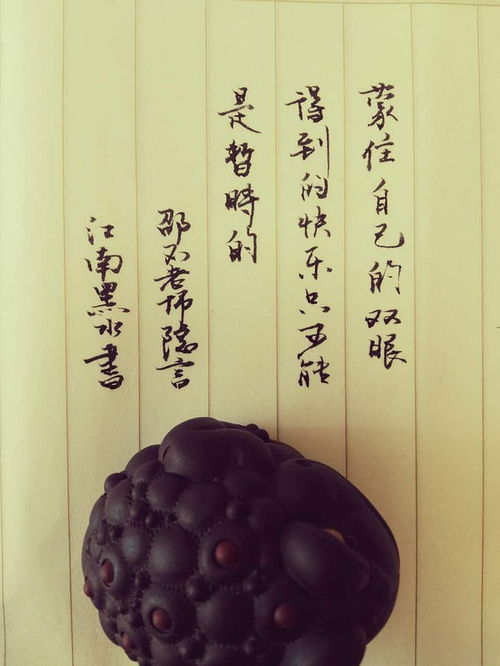 蒙住自己的双眼
得到的快乐只可能
是暫時的
邵不老师随言
江南黑水書